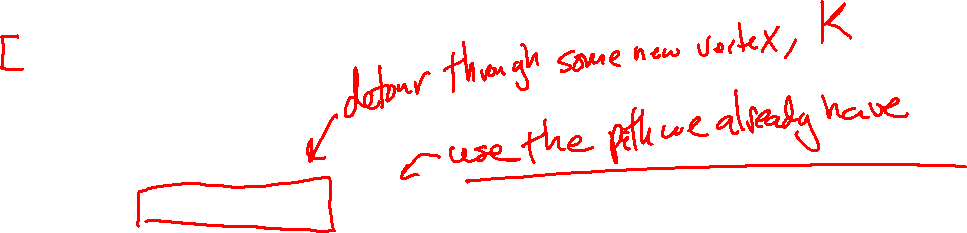 [
detour through some new vertex, K
use the path we already have